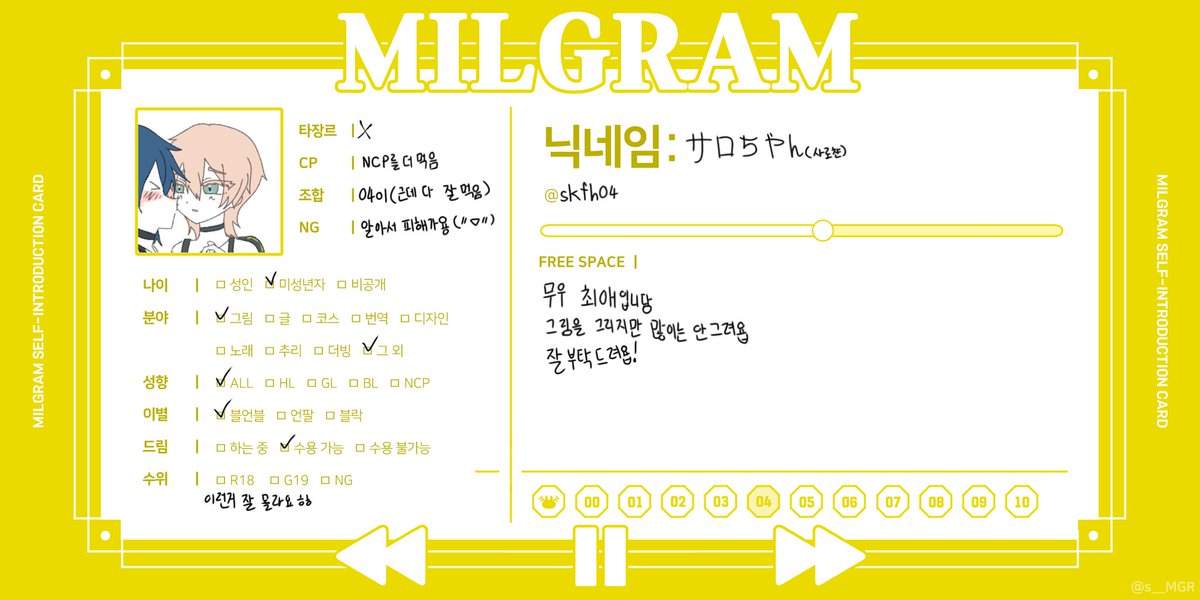 MILGRAM
MILGRAM SELF-INTRODUCTION CARD
타장르 | X
CP | NCP를 더 먹음
조합 | 0401(근데 다 잘 먹음)
NG | 알아서 피해가용("ㅁ")
나이 | 성인 미성년자 비공개
분야 | 그림 글 코스 번역 디자인
노래 추리 더빙 그 외
성향 | ALL HL GL BL NCP
이별 | 블언블 언팔 블락
드림 | 하는 중 수용 가능 수용 불가능
수위 | R18 G19 NG
이런거 잘 몰라요 하하
닉네임: サロちゃん(사로쨘)
@skfh04
FREE SPACE |
무우 최애입니당
그림을 그리지만 많이는 안그려욥
잘 부탁드려욥!
00 01 02 03 04 05 06 07 08 09 10
MILGRAM SELF-INTRODUCTION CARD
@s__MGR